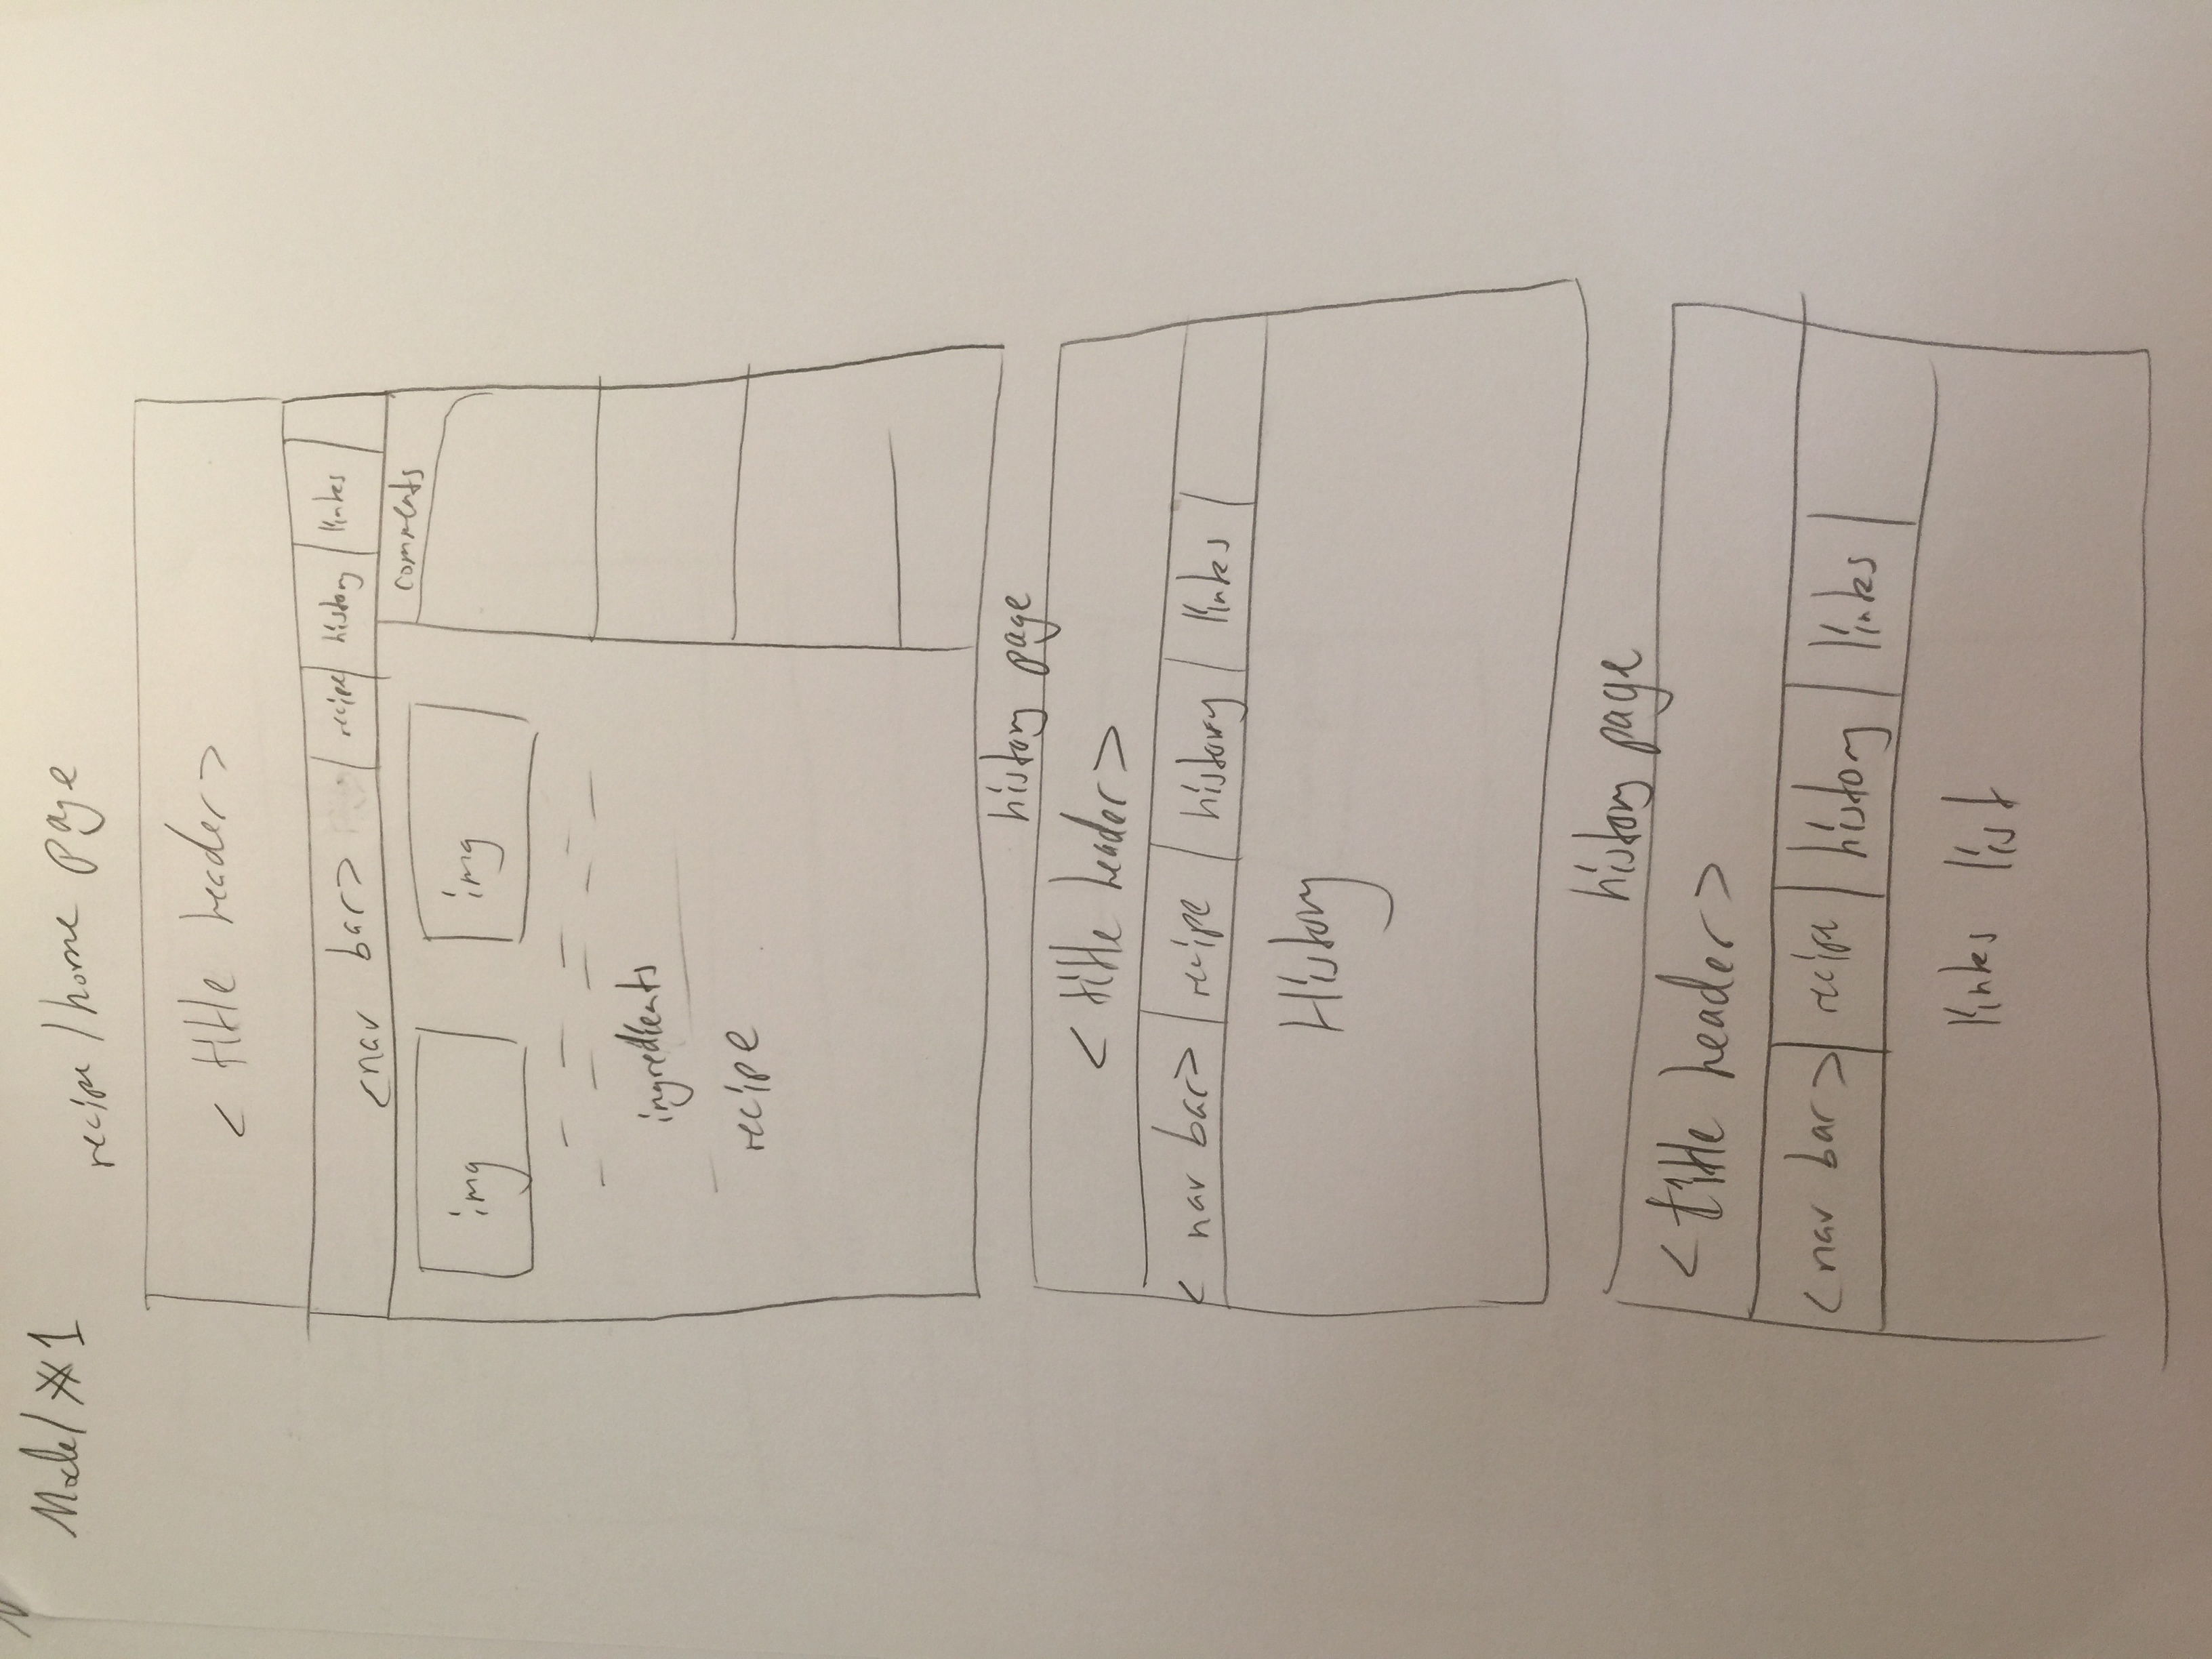 Model #1
recipe/home page
<title header>
<nav bar> recipe history links
comments
img img
ingredients
recipe
history page
<title header>
<nav bar> recipe history links
History
history page
<title header>
<nav bar> recipe history links
links list